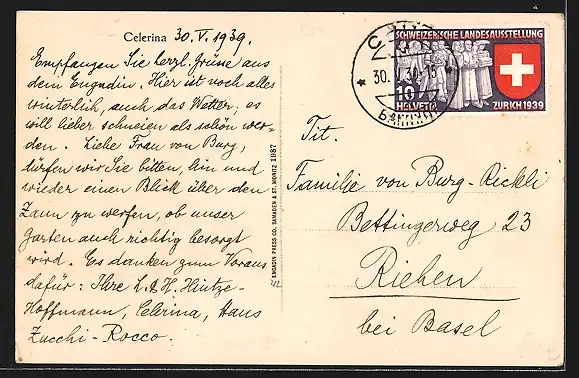 Celerina 30. V. 1939.
Empfangen Sie herzl. Grüsse aus
dem Engadin. Hier ist noch alles
winterlich, auch das Wetter. es
will lieber schneien als schön wer-
den. Liebe Frau von Burg,
dürfen wir Sie bitten, hin und
wieder einen Blick über den
Zaun zu werfen, ob unser
Garten auch richtig besorgt
wird. Es danken zum Voraus
dafür: Ihre L. & H. Hintze-
Hoffmann, Celerina, Haus
Zucchi-Rocco.
ENGADIN PRESS CO. SAMADEN & ST. MORITZ 1987
SCHWEIZERISCHE LANDESAUSSTELLUNG
10
HELVETIA ZURICH 1939
30. V. 39
Tit.
Familie von Burg-Rickli
Bettingerweg 23
Riehen
bei Basel